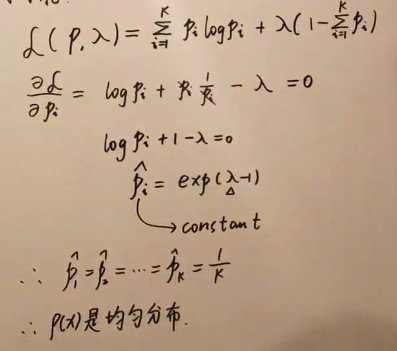 L(P,λ) = Σ_{i=1}^{K} p_i log p_i + λ(1 - Σ_{i=1}^{K} p_i)
∂L/∂p_i = log p_i + p_i 1/p_i - λ = 0
log p_i + 1 - λ = 0
p̂_i = exp(λ-1)
constant
∴ p̂_1 = p̂_2 = ... = p̂_K = 1/K
∴ p(x)是均匀分布.